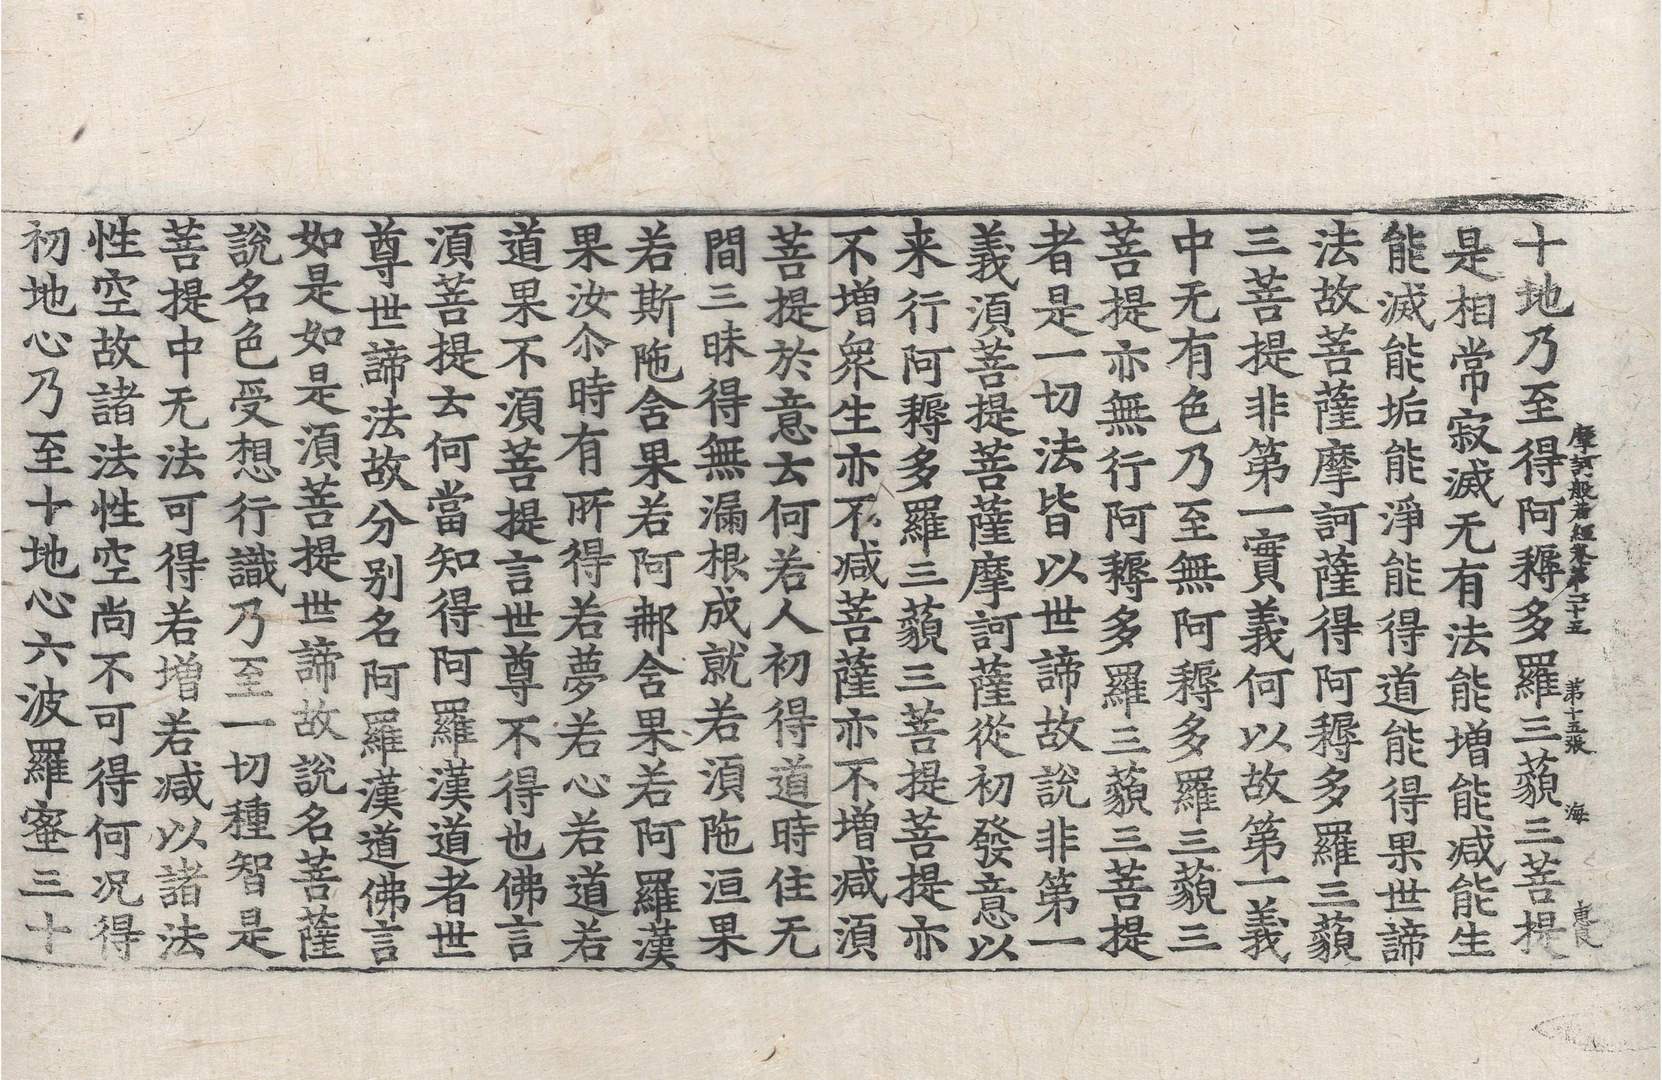 摩訶般若經卷第二十五 第十五張 海
十地乃至得阿耨多羅三藐三菩提
是相常寂滅无有法能增能減能生
能滅能垢能淨能得道能得果世諦
法故菩薩摩訶薩得阿耨多羅三藐
三菩提非第一實義何以故第一義
中无有色乃至無阿耨多羅三藐三
菩提亦無行阿耨多羅三藐三菩提
者是一切法皆以世諦故說非第一
義湏菩提菩薩摩訶薩從初發意以
来行阿耨多羅三藐三菩提菩提亦
不增衆生亦不減菩薩亦不增減湏
菩提於意云何若人初得道時住无
間三昧得無漏根成就若湏陁洹果
若斯陁舍果若阿那舍果若阿羅漢
果汝尒時有所得若夢若心若道若
道果不湏菩提言世尊不得也佛言
湏菩提云何當知得阿羅漢道者世
尊世諦法故分別名阿羅漢道佛言
如是如是湏菩提世諦故說名菩薩
說名色受想行識乃至一切種智是
菩提中无法可得若增若減以諸法
性空故諸法性空尚不可得何况得
初地心乃至十地心六波羅蜜三十